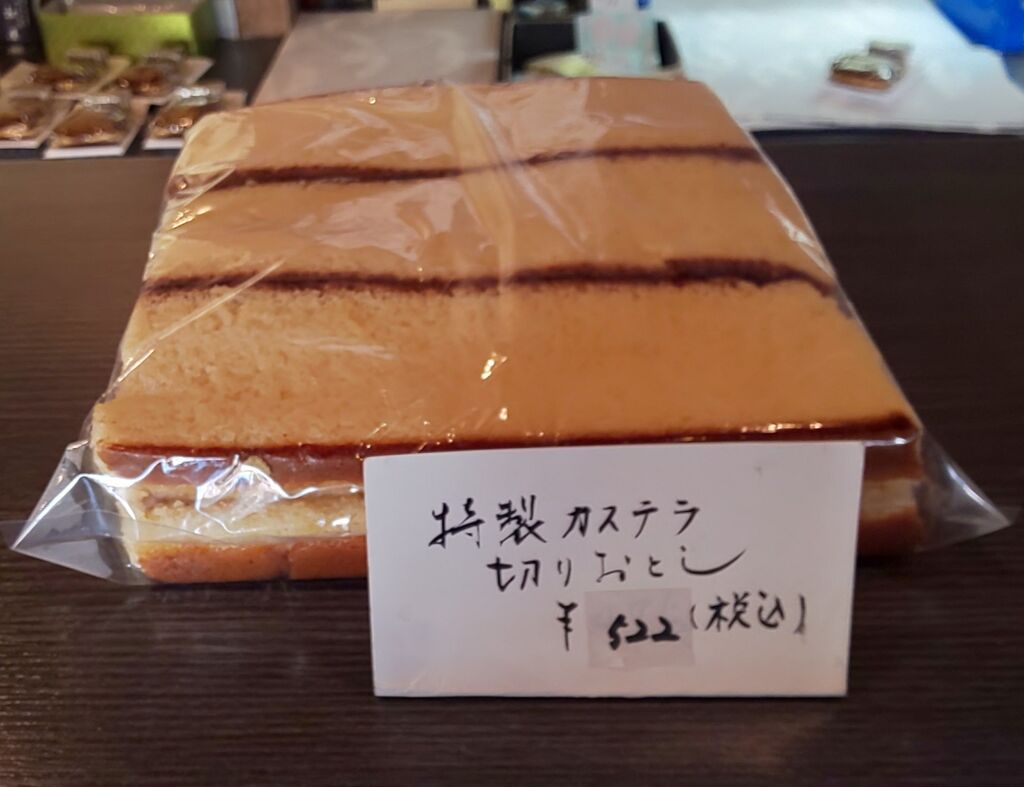 特製カステラ
切りおとし
¥522(税込)